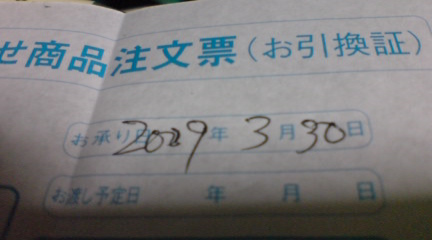 せ商品注文票(お引換証)
お承り日 2029年 3月30日
お渡し予定日 年 月 日